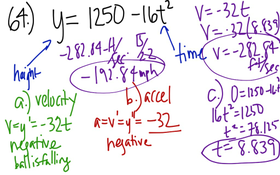 64.) y = 1250 - 16t²
height
time
-282.84 ft/sec · 15/22
-192.84 mph
a.) velocity
v = y' = -32t
negative
ball is falling
b.) accel
a = v' = y'' = -32
negative
v = -32t
v = -32(8.839)
v = -282.84 ft/sec
c.) 0 = 1250 - 16t²
16t² = 1250
t² = 78.125
t = 8.839